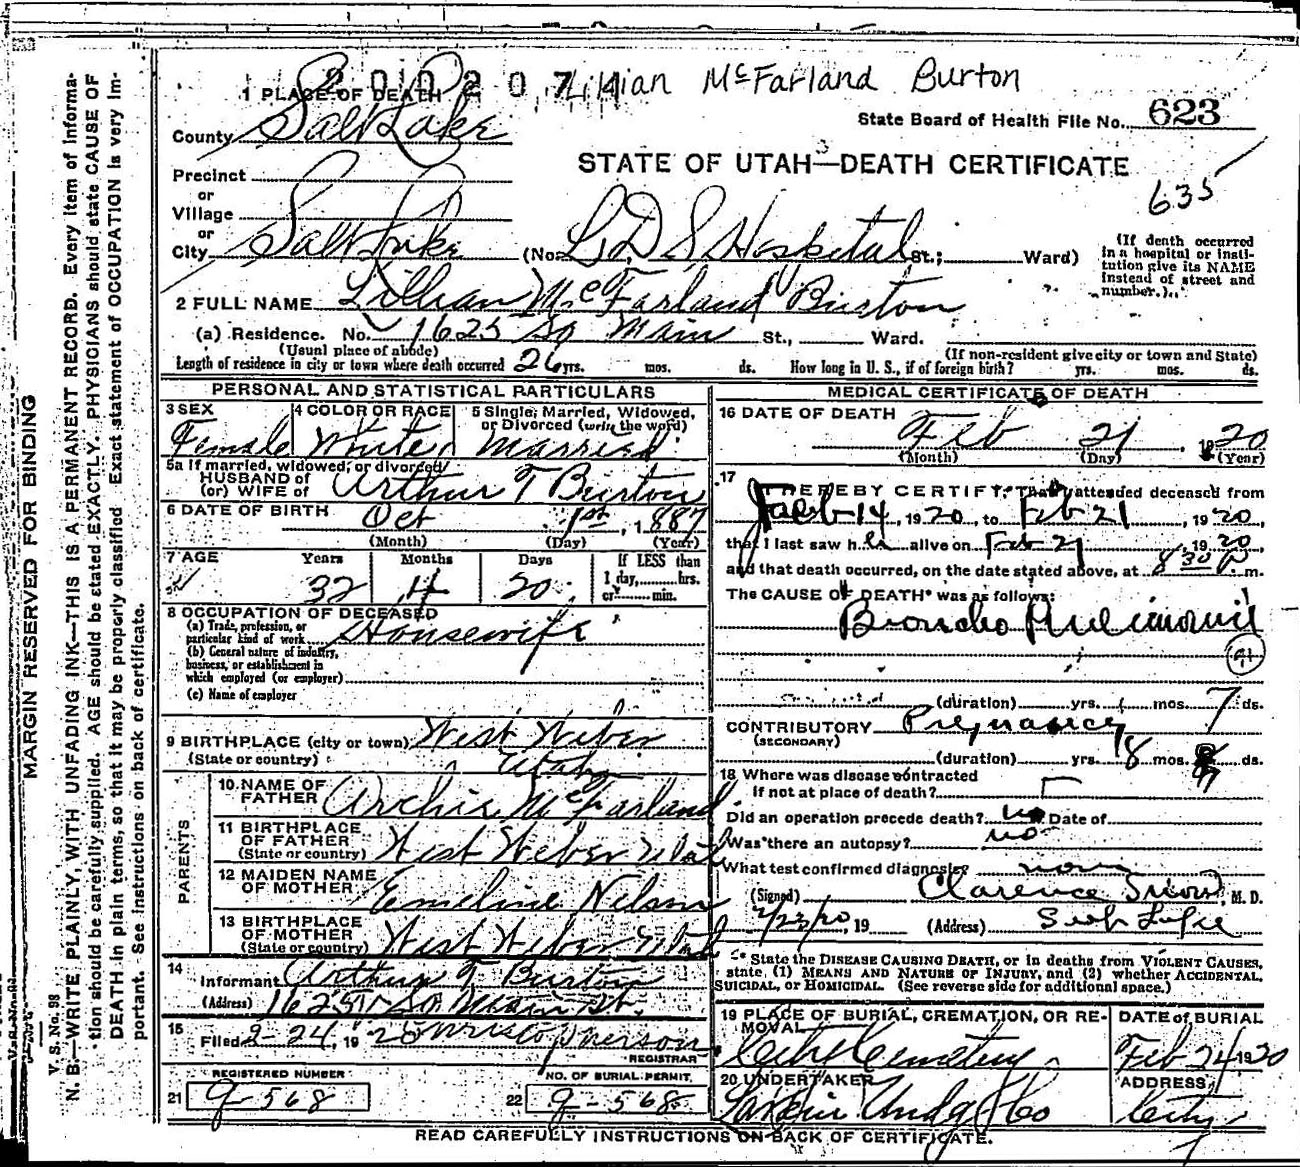 2 0 0 2 0 7 4
Lillian McFarland Burton
1 PLACE OF DEATH
State Board of Health File No. 623
County Salt Lake
STATE OF UTAH—DEATH CERTIFICATE
635
Precinct
or
Village
or
City Salt Lake (No. L.D.S Hospital St.; Ward)
(If death occurred in a hospital or institution give its NAME instead of street and number.)
2 FULL NAME Lillian McFarland Burton
(a) Residence. No. 1625 So Main St., Ward.
(Usual place of abode) (If non-resident give city or town and State)
Length of residence in city or town where death occurred 26 yrs. mos. ds. How long in U. S., if of foreign birth? yrs. mos. ds.
PERSONAL AND STATISTICAL PARTICULARS
3 SEX Female
4 COLOR OR RACE White
5 Single, Married, Widowed, or Divorced (write the word) Married
5a If married, widowed, or divorced
HUSBAND of
(or) WIFE of Arthur T Burton
6 DATE OF BIRTH Oct 1st, 1887
(Month) (Day) (Year)
7 AGE Years Months Days If LESS than
32 4 20 1 day, hrs.
or min.
8 OCCUPATION OF DECEASED
(a) Trade, profession, or
particular kind of work Housewife
(b) General nature of industry,
business, or establishment in
which employed (or employer)
(c) Name of employer
9 BIRTHPLACE (city or town) West Weber
(State or country) Utah
PARENTS
10 NAME OF FATHER Archie McFarland
11 BIRTHPLACE OF FATHER
(State or country) West Weber Utah
12 MAIDEN NAME OF MOTHER Emeline Nelson
13 BIRTHPLACE OF MOTHER
(State or country) West Weber Utah
14
Informant Arthur T Burton
(Address) 1625 So Main St.
15
Filed 2-24, 1920
REGISTRAR
REGISTERED NUMBER
21 G-568
NO. OF BURIAL PERMIT.
22 G-568
MEDICAL CERTIFICATE OF DEATH
16 DATE OF DEATH
Feb 21 1920
(Month) (Day) (Year)
17
I HEREBY CERTIFY, That I attended deceased from
Feb 14, 1920, to Feb 21, 1920,
that I last saw her alive on Feb 21 1920,
and that death occurred, on the date stated above, at 8 30 P. m.
The CAUSE OF DEATH* was as follows:
Broncho Pneumonia
91
(duration) yrs. mos. 7 ds.
CONTRIBUTORY Pregnancy
(SECONDARY)
(duration) yrs. 8 mos. ds.
18 Where was disease contracted
if not at place of death?
Did an operation precede death? no Date of
Was there an autopsy? no
What test confirmed diagnosis
(Signed) Clarence M. D.
2/23/20, 19 (Address)
* State the DISEASE CAUSING DEATH, or in deaths from VIOLENT CAUSES,
state, (1) MEANS AND NATURE OF INJURY, and (2) whether ACCIDENTAL,
SUICIDAL, or HOMICIDAL. (See reverse side for additional space.)
19 PLACE OF BURIAL, CREMATION, OR REMOVAL
City Cemetery
DATE of BURIAL
Feb 24 1920
20 UNDERTAKER
Larkin Undg Co
ADDRESS
City
READ CAREFULLY INSTRUCTIONS ON BACK OF CERTIFICATE.
MARGIN RESERVED FOR BINDING
V. S. No. 98
N. B.—WRITE PLAINLY, WITH UNFADING INK—THIS IS A PERMANENT RECORD. Every item of informa-
tion should be carefully supplied. AGE should be stated EXACTLY. PHYSICIANS should state CAUSE OF
DEATH in plain terms, so that it may be properly classified. Exact statement of OCCUPATION is very im-
portant. See instructions on back of certificate.